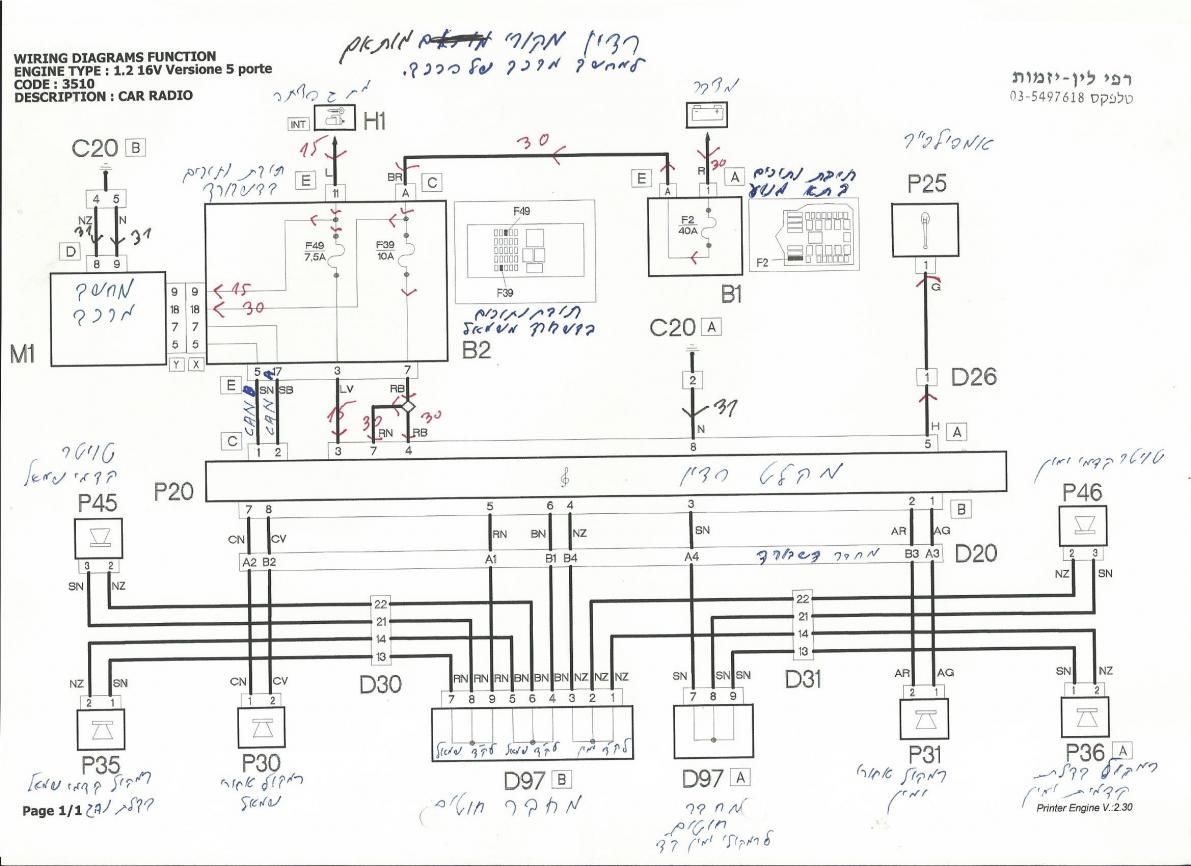 רדיו מקורי מותאם
למחשב מרכב של הרכב.
WIRING DIAGRAMS FUNCTION
ENGINE TYPE : 1.2 16V Versione 5 porte
CODE : 3510
DESCRIPTION : CAR RADIO
רפי לין-יזמות
טלפקס 03-5497618
מצבר
INT
H1
C20 B
15
30
30
אמפליפייר
תיבת נתיכים
E
L
11
BR
A
C
E
R
1
A
תיבת נתיכים
בתא מנוע
P25
4 5
NZ N
31 31
D
8 9
F49
7,5A
F39
10A
F49
F39
F2
40A
F2
B1
1
G
מחשב
מרכב
M1
9 9 15
18 18 30
7 7
5 5
Y X
תיבת נתיכים
B2
C20 A
2
31
N
1 D26
H
5
A
E
5 17 3 7
CAN B SN CAN A SB LV RB
15 30 30
RN RB
C
1 2 3 7 4 8
טויטר
קדמי שמאל
P45
P20
מקלט רדיו
טויטר קדמי ימין
P46
7 8 5 6 4 3 2 1
B
CN CV RN BN NZ SN AR AG
A2 B2 A1 B1 B4 A4 B3 A3
D20
3 2
SN NZ
2 3
NZ SN
22 22
21 21
14 14
13 13
D30 D31
NZ SN CN CV RN RN RN BN BN BN NZ NZ NZ SN SN SN AR AG SN NZ
2 1 1 2 7 8 9 5 6 4 3 2 1 7 8 9 2 1 1 2
P35 P30 D97 B D97 A P31 P36 A
רמקול קדמי שמאל
רמקול אחורי
שמאל
מחבר חוטים
מחבר
חוטים
רמקול אחורי
ימין
רמקול בדלת
קדמית ימין
Page 1/1
Printer Engine V.:2.30